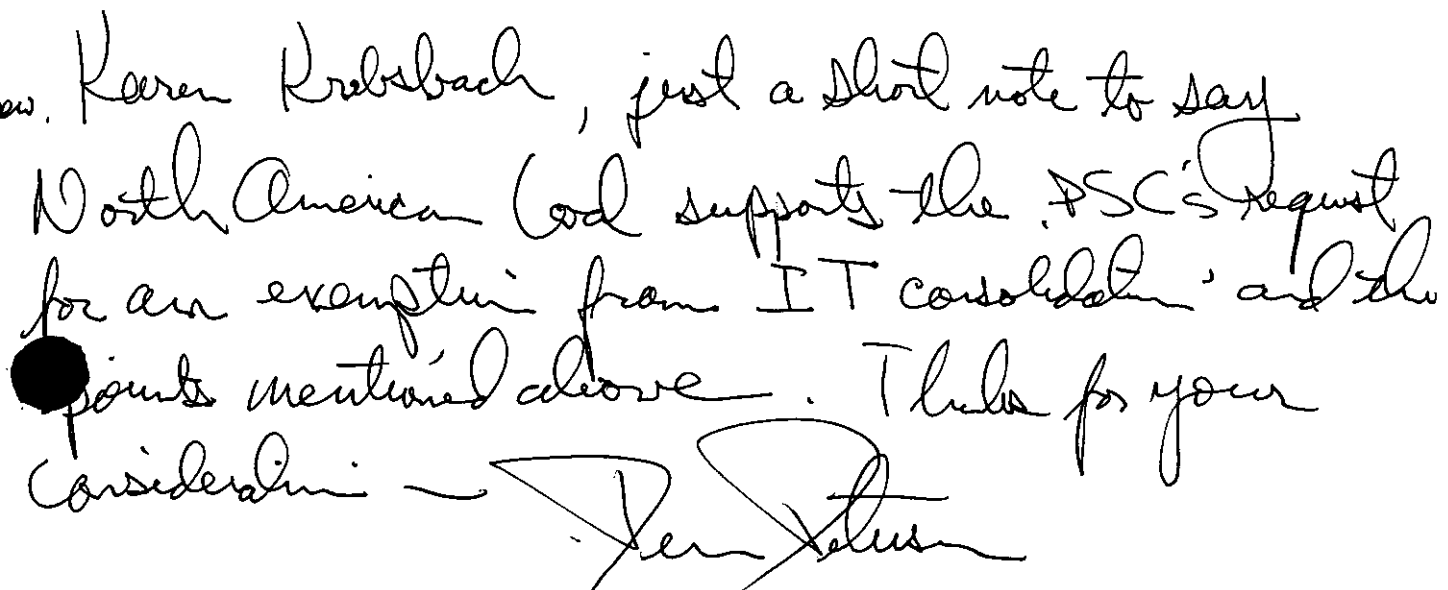 Karen Krebsbach, just a short note to say
North American Coal supports the PSC's request
for an exemption from IT consolidation and the
points mentioned above. Thanks for your
consideration — Dean Peterson